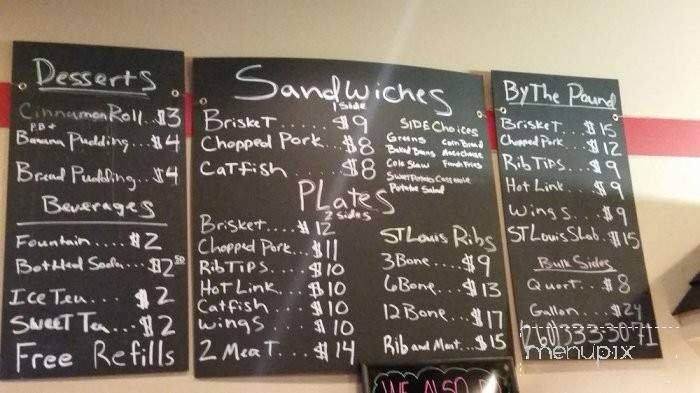 Desserts
Cinnamon Roll..$3
P.B +
Banana Pudding..$4
Bread Pudding..$4
Beverages
Fountain....$2
Bottled Soda...$2.50
Ice Tea....$2
Sweet Tea...$2
Free Refills
Sandwiches
1 Side
Brisket...$9
Chopped Pork..$8
Catfish...$8
SIDE Choices
Greens Corn Bread
Baked Beans Mac & Cheese
Cole Slaw Fresh Fries
Sweet Potato Casserole
Potato Salad
PLates
2 sides
Brisket....$12
Chopped Pork...$11
Rib Tips...$10
Hot Link.$10
Catfish...$10
Wings...$10
2 Meat...$14
St Louis Ribs
3 Bone....$9
6 Bone....$13
12 Bone...$17
Rib and Meat..$15
By The Pound
Brisket...$15
Chopped Pork..$12
Rib Tips...$9
Hot Link...$9
Wings...$9
ST Louis Slab.$15
Bulk Sides
Quart...$8
Gallon....$24
(260)333-3071
menupix
WE ALSO